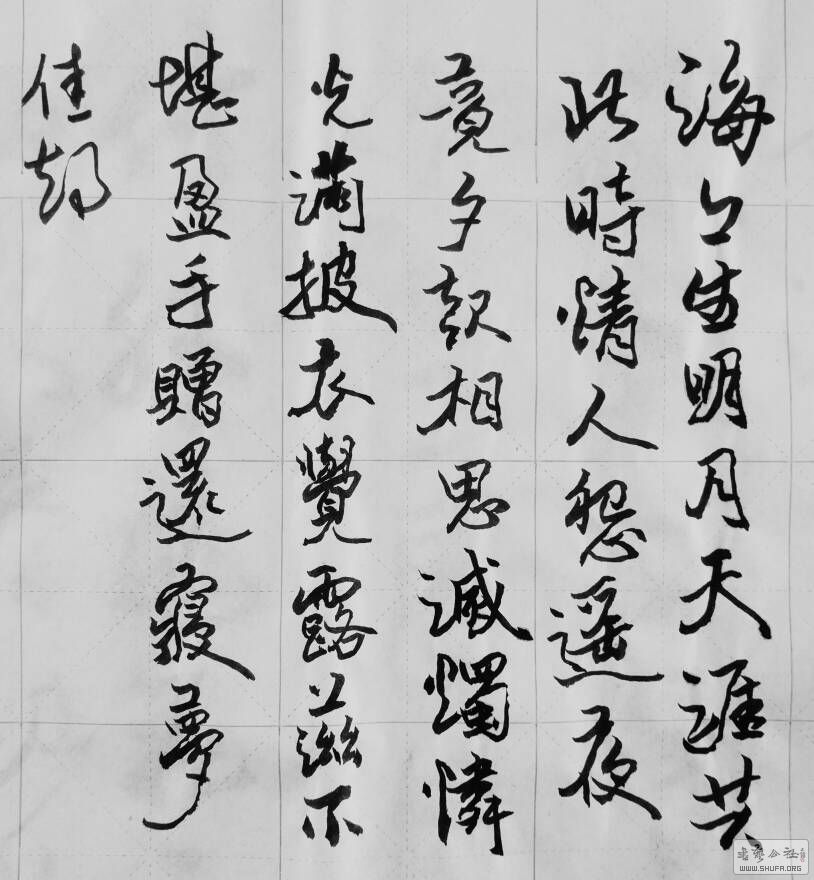 海上生明月天涯共
此時情人怨遥夜
竟夕起相思滅燭憐
光滿披衣覺露滋不
堪盈手贈還寢夢
佳期
書藝公社
WWW.SHUFA.ORG